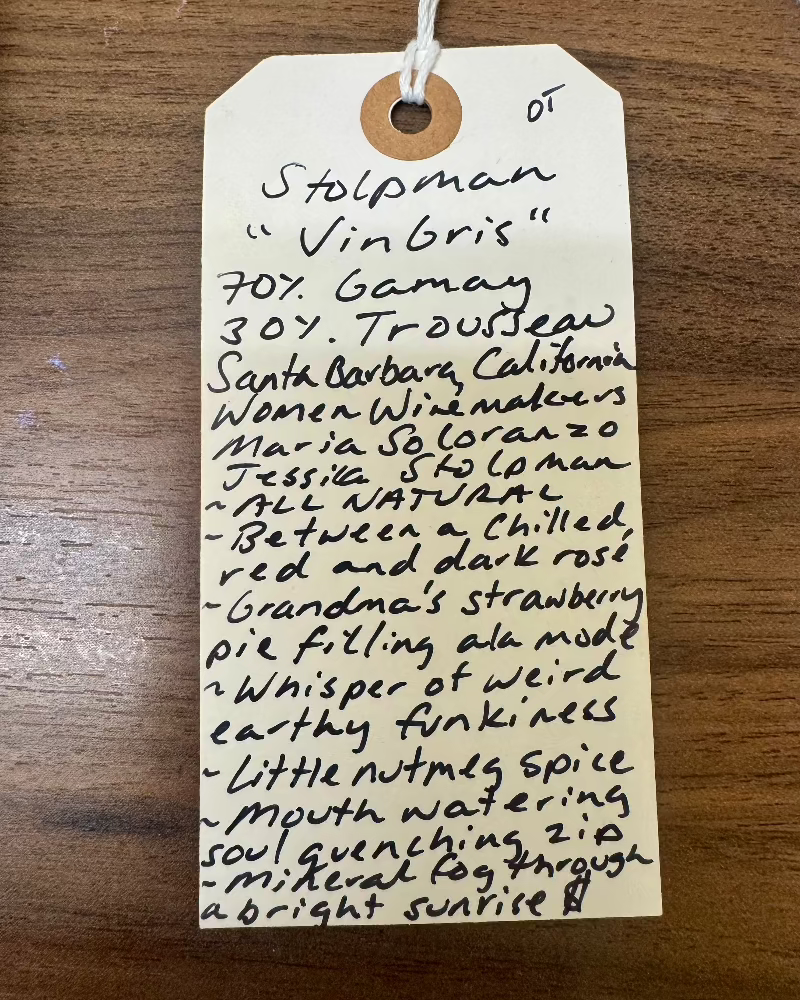 OT
Stolpman
"Vin Gris"
70% Gamay
30% Trousseau
Santa Barbara, California
Women Winemakers
Maria Soloranzo
Jessica Stolpman
~ALL NATURAL
~Between a Chilled,
red and dark rosé
~Grandma's strawberry
pie filling ala mode
~Whisper of weird
earthy funkiness
~Little nutmeg spice
~Mouth watering
soul quenching zip
~Mineral fog through
a bright sunrise